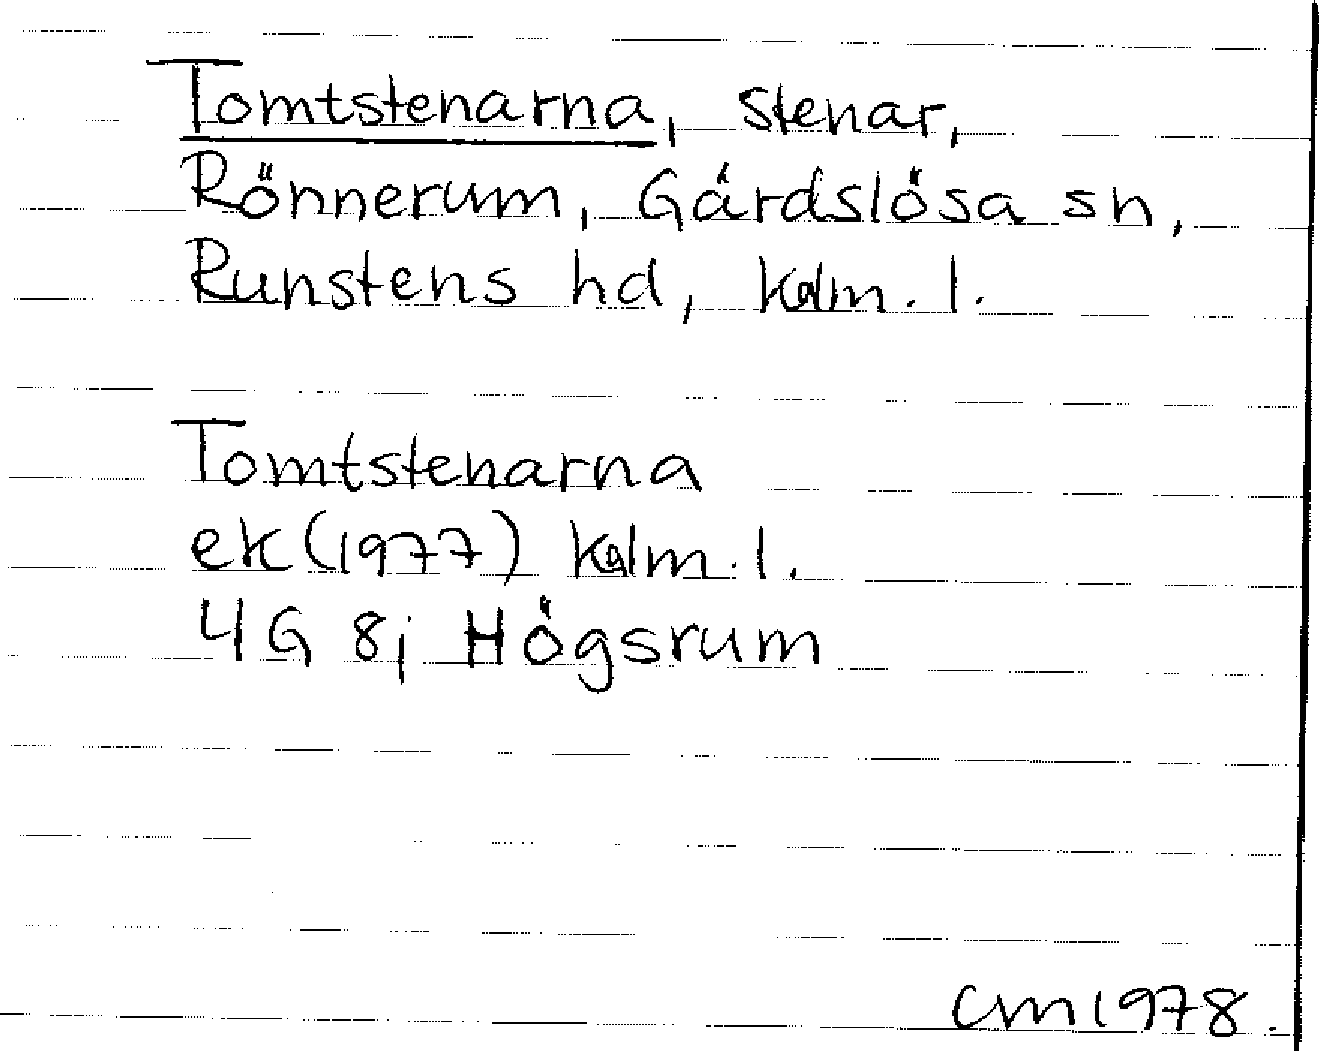 Tomtstenarna, stenar,
Rönnerum, Gårdslösa sn,
Runstens hd, Kalm. l.
Tomtstenarna
ek (1977) Kalm. l.
4G 8j Högsrum
CM 1978.